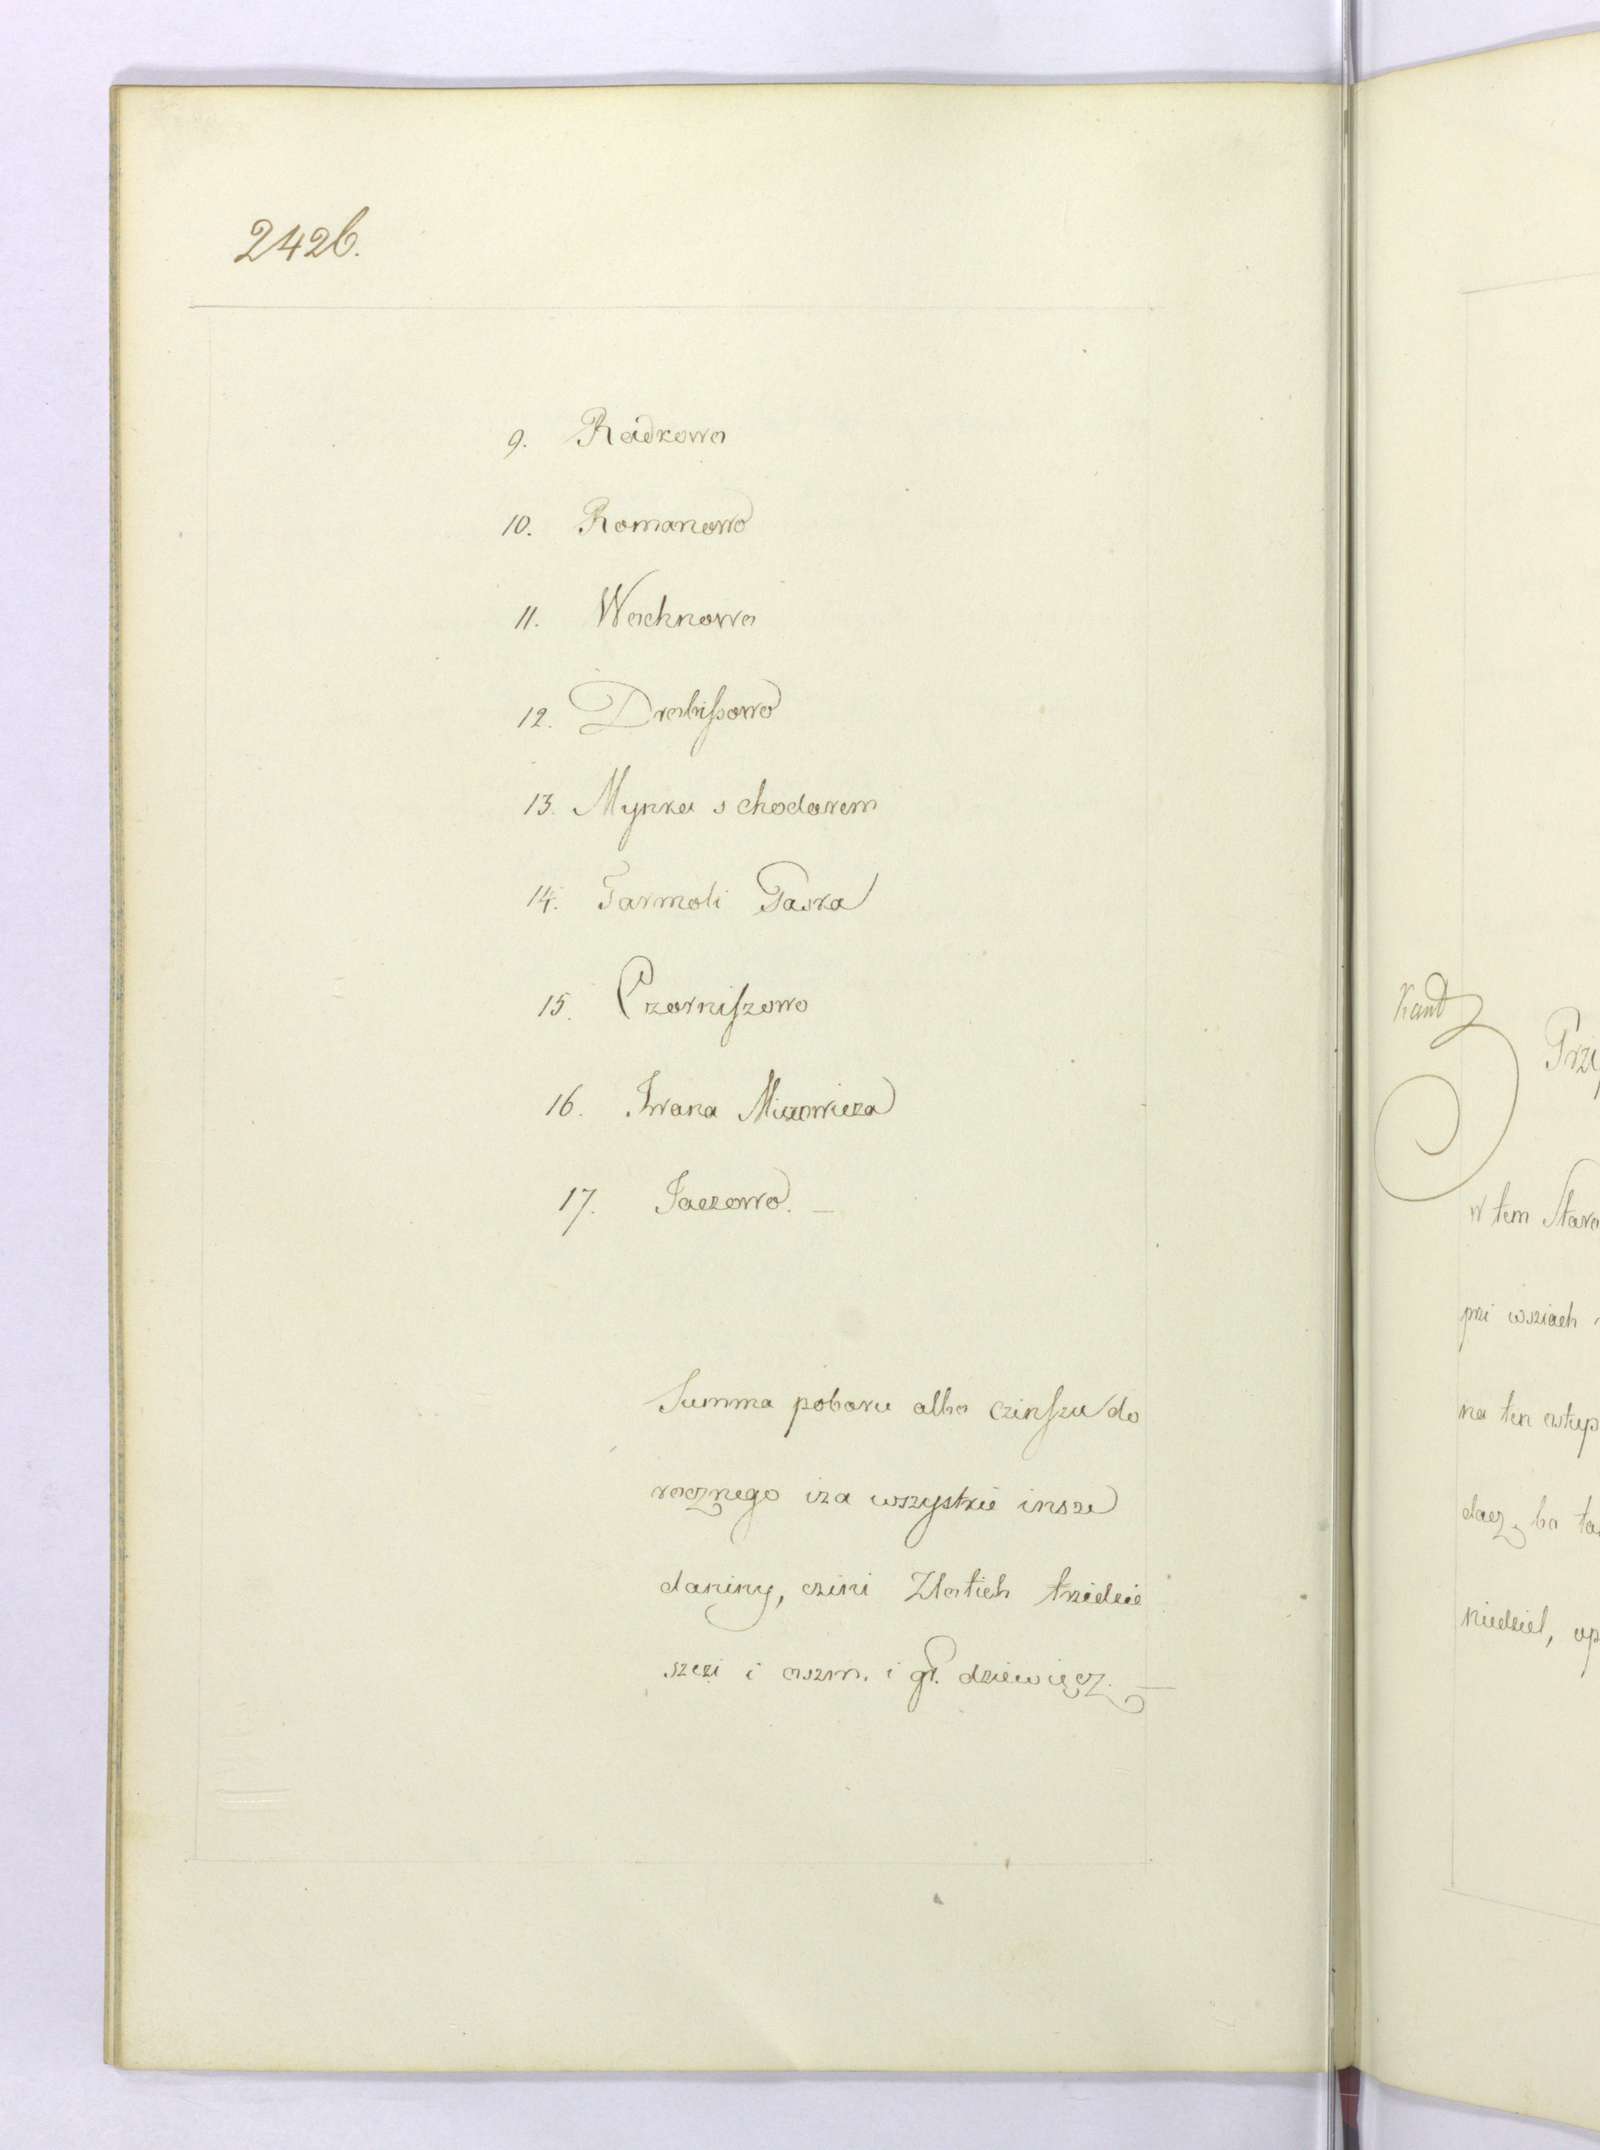 242b.
9. Radkowa
10. Romanowo
11. Wachnowa
12. Drobiſsowo
13. Mynka s chodorem
14. Jarmoli Paska
15. Czarniſzowo
16. Iwana Micowicza
17. Jaczowo. —
Summa poboru albo czinſzu do
rocznego iza wszystkie insze
daniny, czini Złotich trzidzie
szczi i oszm. i gr. dziewięcz. —
Kand
Przi
w tem Staro
przi wsziach
na ten ostup
dacz, bo ta
niedziel, up